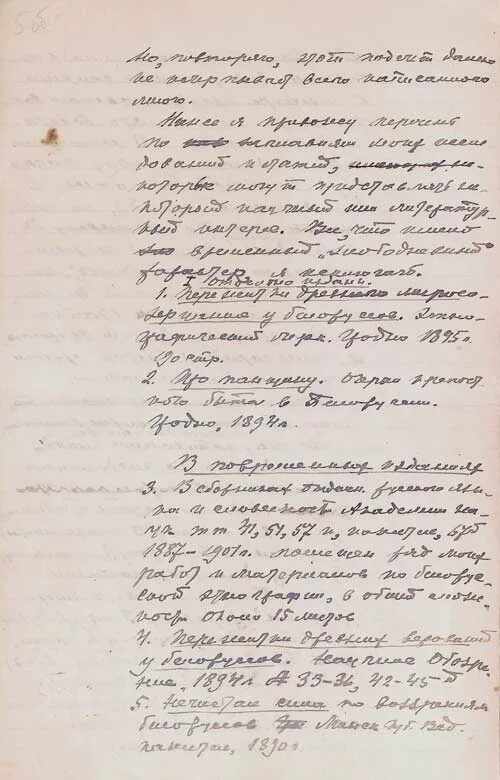 Но, повторяю, этот подсчет далеко
не исчерпывает всего написанного
мною.
Ниже я привожу перечень
по заглавиям моих иссле
дований и статей,
которые могут представлять не
который научный или литератур
ный интерес. Все, что имеет
временный „злободневный"
характер я исключаю.
I Отдельно изданн.
1. Пережитки древнего миросо-
зерцания у белорусов. Этно
графический очерк. Гродно 1895 г.
190 стр.
2. Про панщину. Очерки крепост
ного быта в Белоруссии.
Гродно, 1894 г.
В повременных изданиях
3. В сборниках отделен. русского язы
ка и словесности Академии на
ук тт 41, 51, 57 и, кажется,
1887–1901 г. помещен ряд моих
работ и материалов по белорус
ской этнографии, в общей слож
ности около 15 листов
4. Пережитки древних верований
у белорусов. Научное Обозре
ние, 1894 г № 33-36, 42-45
5. Нечистая сила по воззрениям
белорусов Минск. Губ. Вед.
кажется, 1890 г.